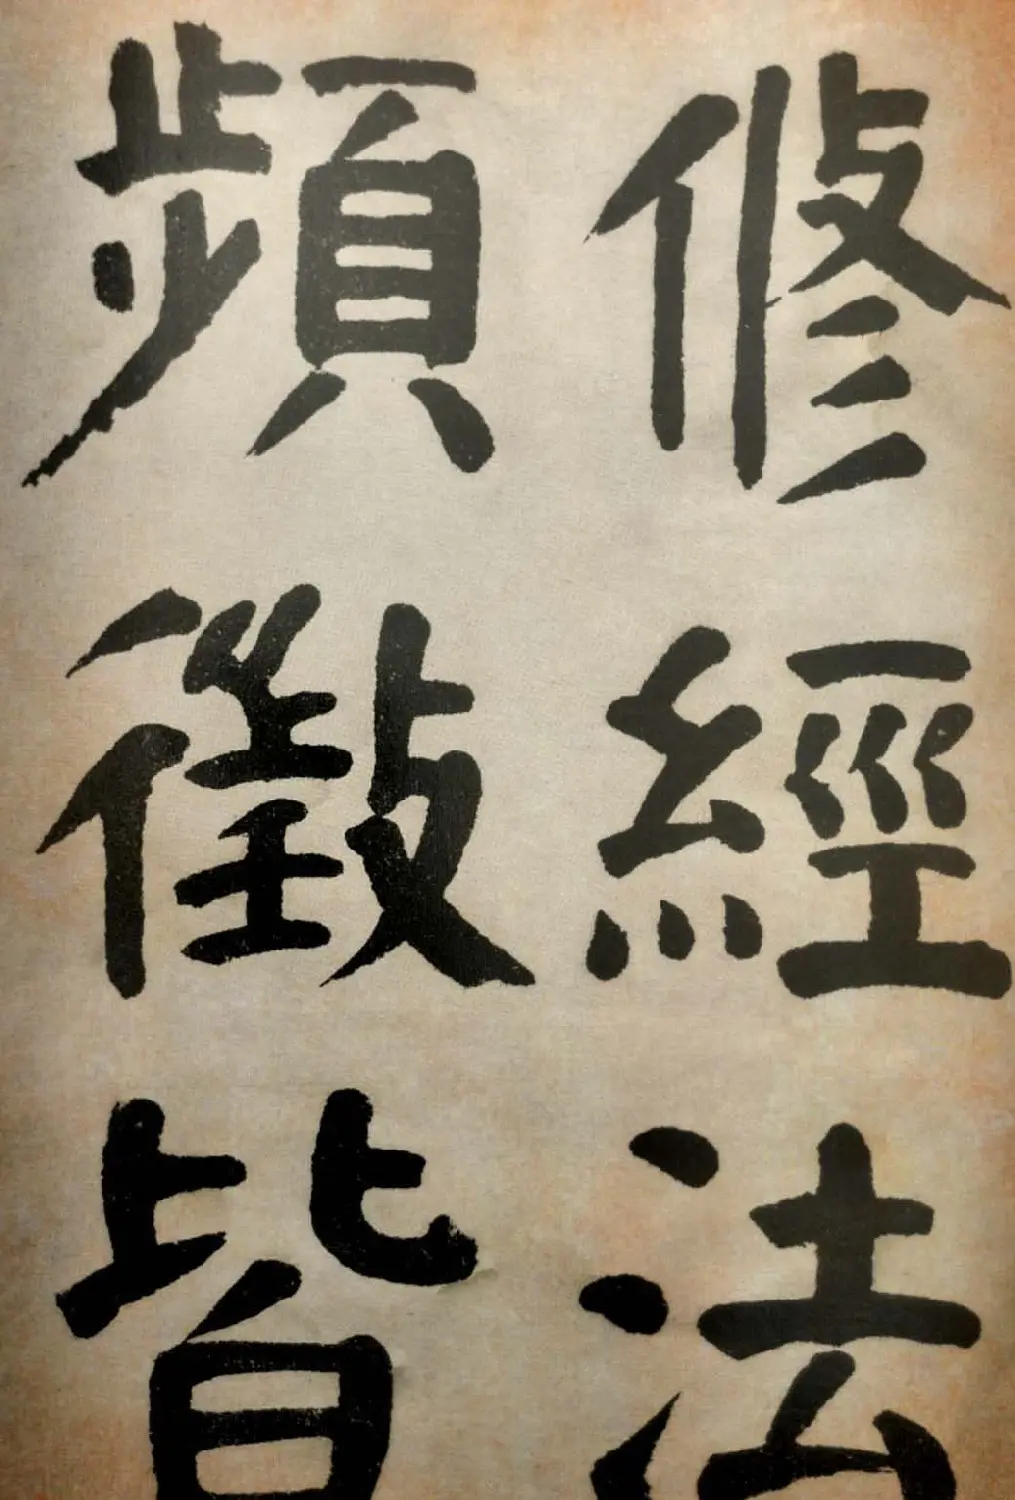 修經法
頻徵皆